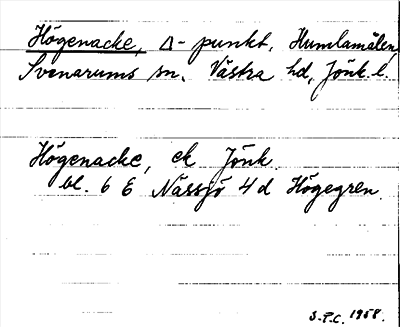 Högenacke, Δ-punkt, Humlamålen,
Svenarums sn, Västra hd, Jönk. l.
Högenacke, ek Jönk.
bl. 6 E Nässjö 4 d Högegren.
S.P.C. 1958.